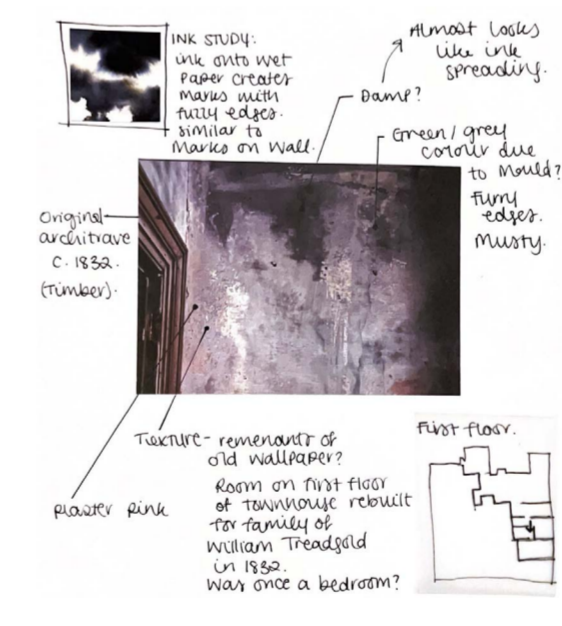 INK STUDY:
ink onto wet
paper creates
marks with
fuzzy edges.
similar to
Marks on Wall.
Almost looks
like ink
spreading.
Damp?
Green/grey
colour due
to Mould?
Furry
edges.
Musty.
Original
architrave
c. 1832.
(Timber).
Texture - remenants of
old wallpaper?
plaster pink
Room on first floor
of townhouse rebuilt
for family of
William Treadgold
in 1832.
was once a bedroom?
First floor.